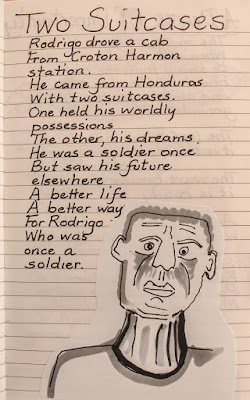 Two Suitcases
Rodrigo drove a cab
From Croton Harmon
station.
He came from Honduras
With two suitcases.
One held his worldly
possessions
The other, his dreams.
He was a soldier once
But saw his future
elsewhere.
A better life
A better way
For Rodrigo
Who was
once a
soldier.